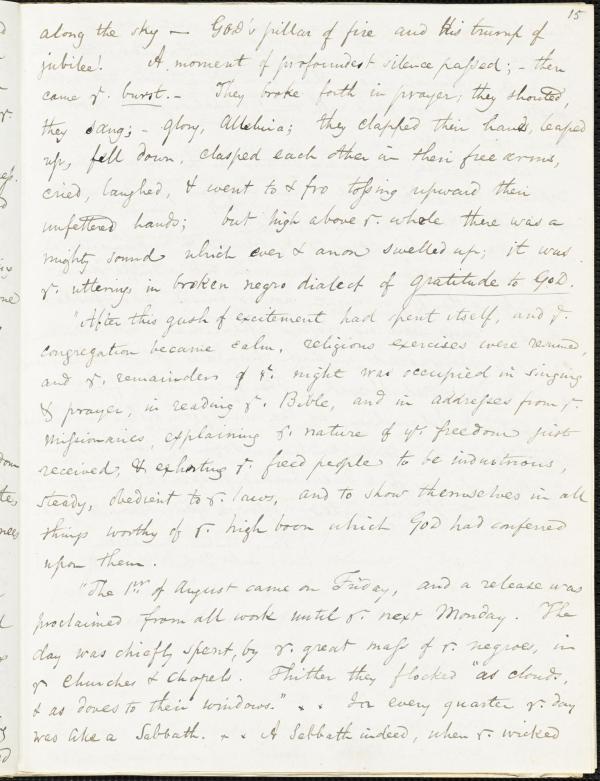 15
along the sky — GOD's pillar of fire and his trump of
jubilee! A moment of profoundest silence passed; – then
came yᵉ. burst. – They broke forth in prayer; they shouted,
they sang; – glory, Alleluia; they clapped their hands, leaped
up, fell down, clasped each other in their free arms,
cried, laughed, & went to & fro tossing upward their
unfettered hands; but high above yᵉ. whole there was a
mighty sound which ever & anon swelled up; it was
yᵉ. utterings in broken negro dialect of gratitude to GOD.
"After this gush of excitement had spent itself, and yᵉ.
congregation became calm, religious exercises were resumed,
and yᵉ. remainders of yᵉ. night was occupied in singing
& prayer, in reading yᵉ. Bible, and in addresses from yᵉ.
missionaries, explaining yᵉ. nature of yᵉ. freedom just
received, & exhorting yᵉ. freed people to be industrious,
steady, obedient to yᵉ. laws, and to show themselves in all
things worthy of yᵉ. high boon which GOD had conferred
upon them.
"The 1ˢᵗ of August came on Friday, and a release was
proclaimed from all work until yᵉ. next Monday. The
day was chiefly spent, by yᵉ. great mass of yᵉ. negroes, in
yᵉ churches & chapels. Thither they flocked "as clouds,
& as doves to their windows." × × For every quarter yᵉ. day
was like a Sabbath. × × A Sabbath indeed, when yᵉ. wicked